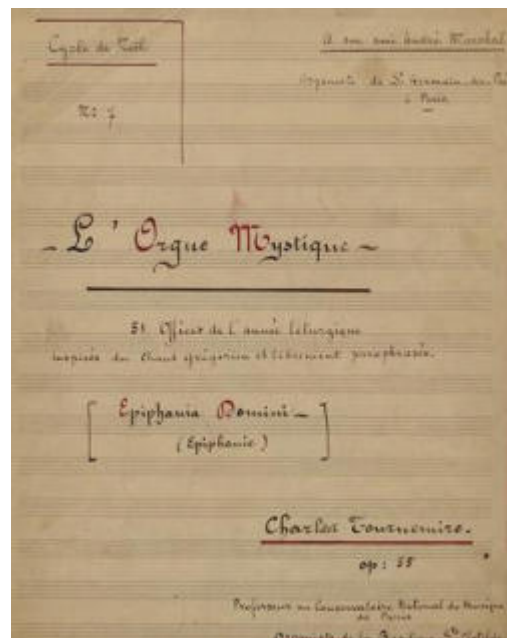 Cycle de Noël
No 7
A mon ami André Marchal
Organiste de St Germain des Pré
à Paris
- L'Orgue Mystique -
51 Offices de l'année liturgique
inspirés du chant grégorien et librement paraphrasés.
[ Epiphania Domini - ]
(Epiphanie)
Charles Tournemire.
op: 55
Professeur au Conservatoire National de Musique
de Paris